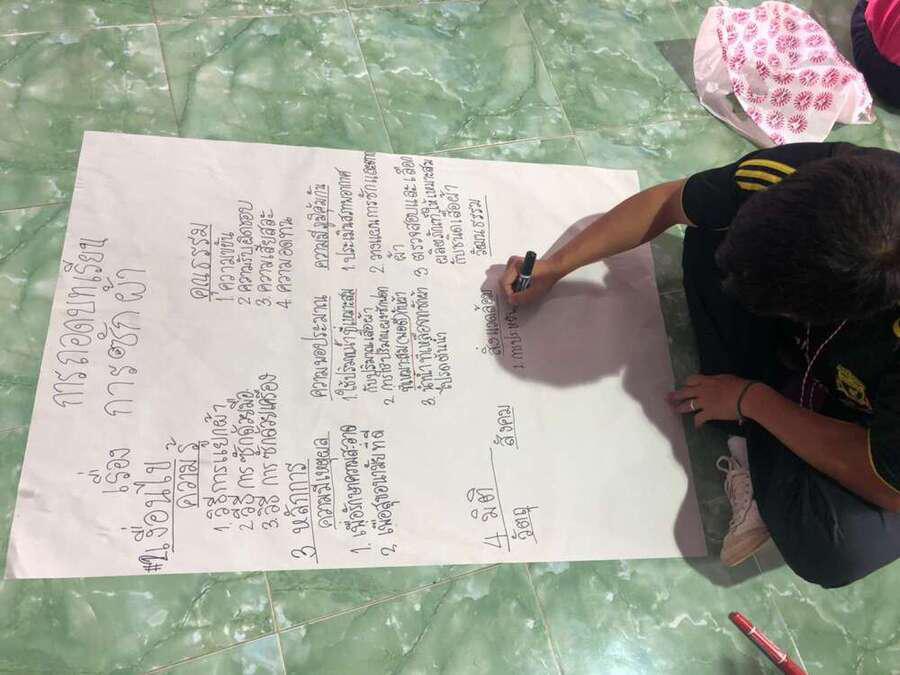 การถอดบทเรียน
เรื่อง การซักผ้า
#2เงื่อนไข
ความรู้
1. วิธีการแยกผ้า
2 วิธีการซักด้วยมือ
3. วิธีการซักด้วยเครื่อง
คุณธรรม
1 ความขยัน
2 ความรับผิดชอบ
3 ความเสียสละ
4 ความอดทน
3 หลักการ
ความมีเหตุผล
1. เพื่อรักษาความสะอาด
2. เพื่อสุขอนามัยที่ดี
ความพอประมาณ
1. ใช้ปริมาณน้ำที่เหมาะสม
กับปริมาณเสื้อผ้า
2 การใช้ปริมาณผงซักฟอก
3. นำน้ำที่เหลือจากซักผ้า
ไปรดต้นไม้
ความมีภูมิคุ้มกัน
1. ประเมินสภาพอากาศ
2 วางแผนการซักและตาก
ผ้า
3 ตรวจสอบและเลือก
ผลิตภัณฑ์ให้เหมาะสม
กับชนิดเสื้อผ้า
4 มิติ
วัตถุ
สังคม
สิ่งแวดล้อม
1. การประหยัด
วัฒนธรรม